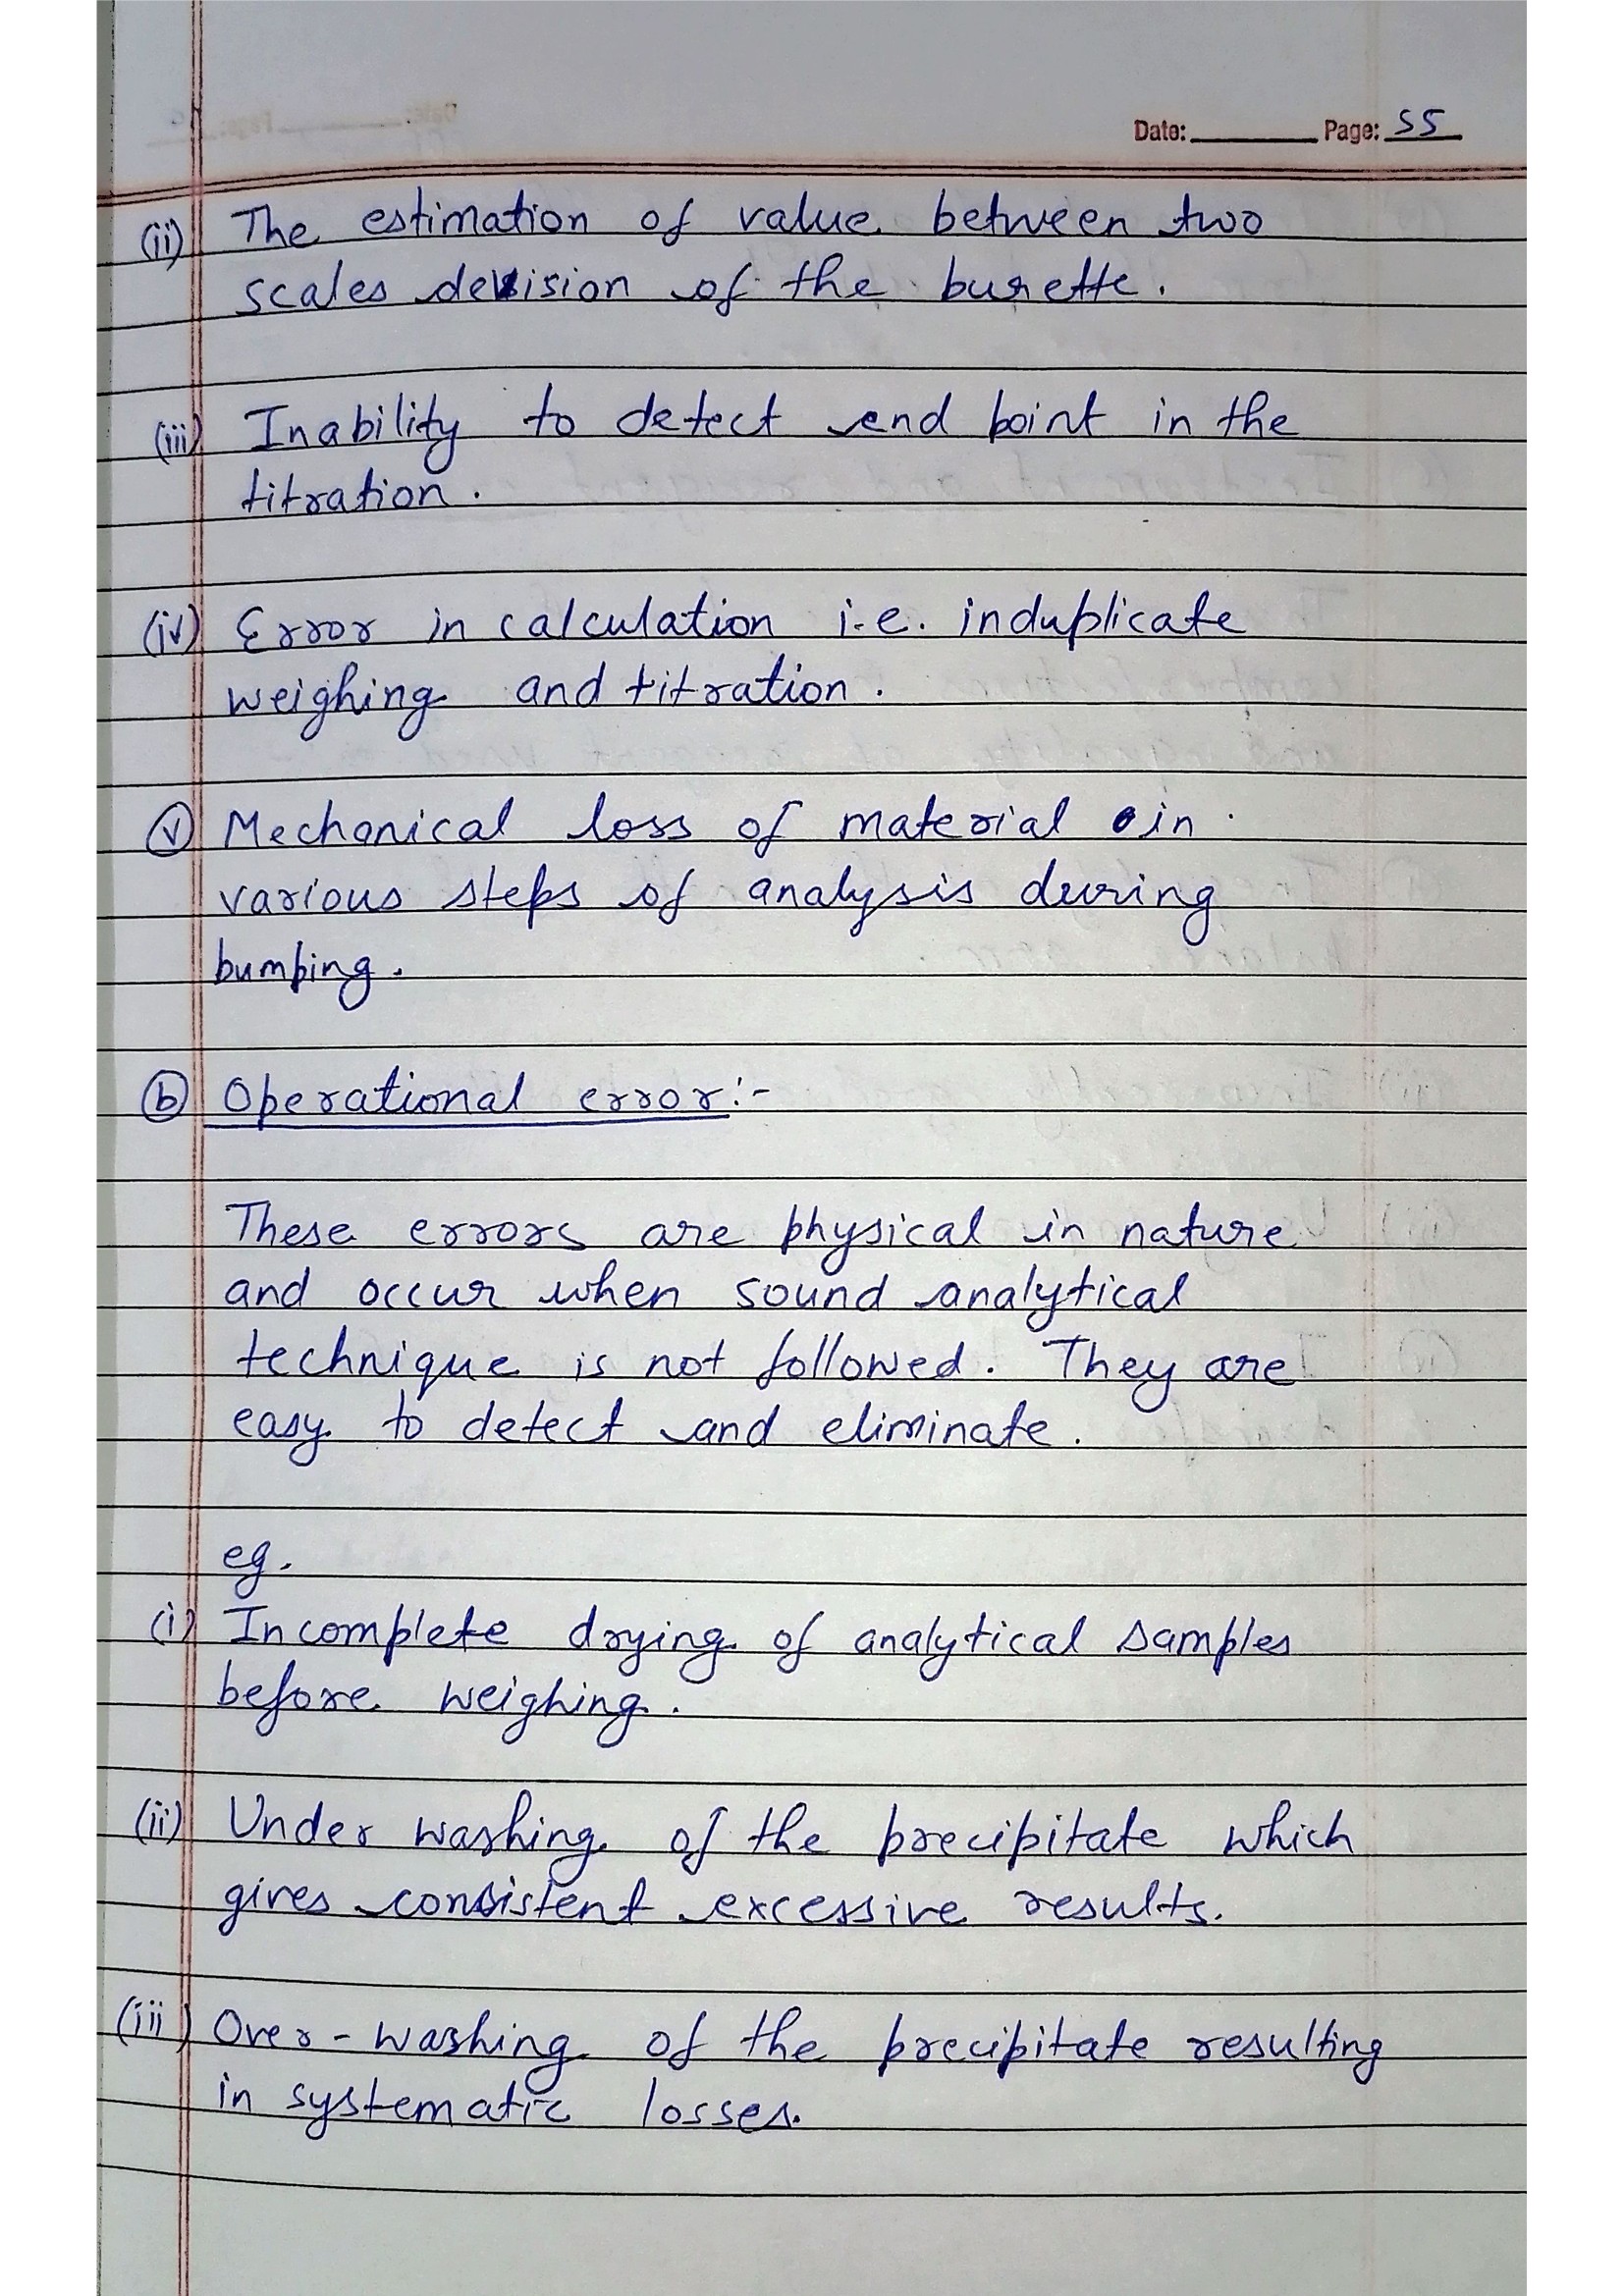 Date: Page: 55
(ii) The estimation of value between two
scales devision of the burette.
(iii) Inability to detect end point in the
titration.
(iv) Error in calculation i.e. induplicate
weighing and titration.
(v) Mechanical loss of material in
various steps of analysis during
bumping.
(b) Operational error:-
These errors are physical in nature
and occur when sound analytical
technique is not followed. They are
easy to detect and eliminate.
eg.
(i) Incomplete drying of analytical samples
before weighing.
(ii) Under washing of the precipitate which
gives consistent excessive results.
(iii) Over-washing of the precipitate resulting
in systematic losses.